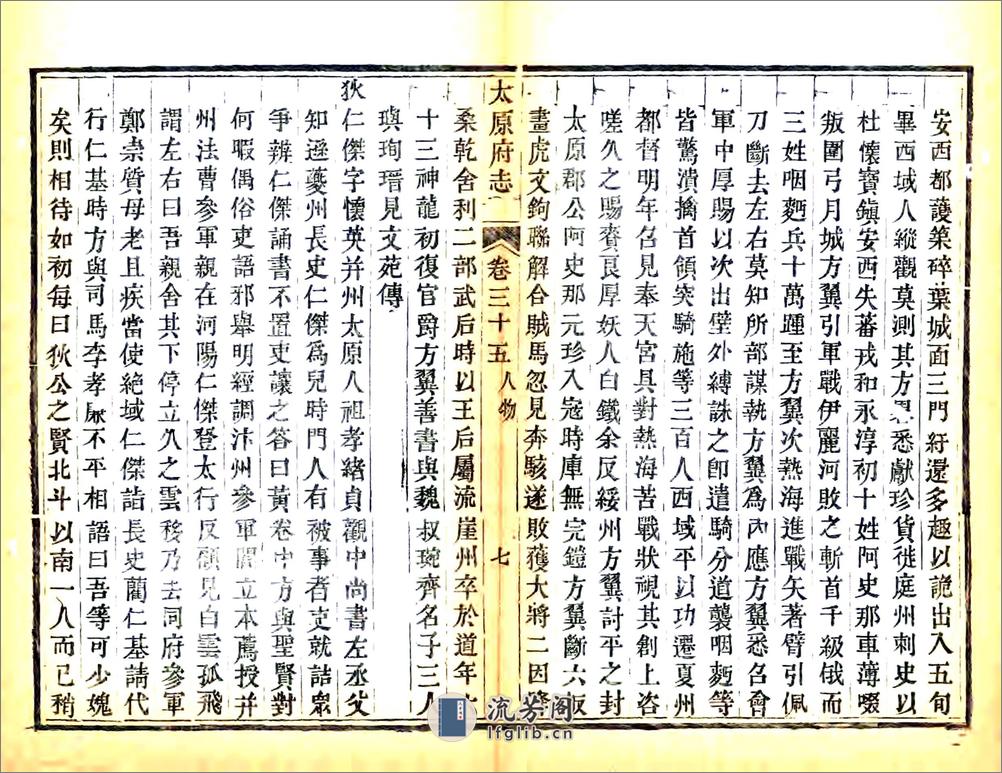 安西都護築碎葉城面三門紆還多趣以詭出入五旬
畢西域人縱觀莫測其方略悉獻珍貨徙庭州刺史以
杜懷寶鎮安西失蕃戎和永淳初十姓阿史那車薄啜
叛圍弓月城方翼引軍戰伊麗河敗之斬首千級俄而
三姓咽麪兵十萬踵至方翼次熱海進戰矢著臂引佩
刀斷去左右莫知所部謀執方翼為內應方翼悉召會
軍中厚賜以次出壁外縛誅之卽遣騎分道襲咽麪等
皆驚潰擒首領突騎施等三百人西域平以功遷夏州
都督明年召見奉天宮具對熱海苦戰狀視其創上咨
嗟久之賜賚良厚妖人白鐵余反綏州方翼討平之封
太原郡公阿史那元珍入寇時庫無完鎧方翼斷六板
畫虎文鉤聯解合賊馬忽見奔駭遂敗獲大將二因降
太原府志 卷三十五 人物 七
桑乾舍利二部武后時以王后屬流崖州卒於道年六
十三神龍初復官爵方翼善書與魏叔琬齊名子三人
璵珣瑨見文苑傳
狄仁傑字懷英并州太原人祖孝緒貞觀中尚書左丞父
知遜夔州長史仁傑為兒時門人有被事者吏就詰衆
爭辨仁傑誦書不置吏讓之答曰黃卷中方與聖賢對
何暇偶俗吏語邪舉明經調汴州參軍閻立本薦授并
州法曹參軍親在河陽仁傑登太行反顧見白雲孤飛
謂左右曰吾親舍其下停立久之雲移乃去同府參軍
鄭崇質母老且疾當使絶域仁傑詣長史藺仁基請代
行仁基時方與司馬李孝廉不平相語曰吾等可少媿
矣則相待如初每曰狄公之賢北斗以南一人而已稍
流芳阁
lfglib.cn